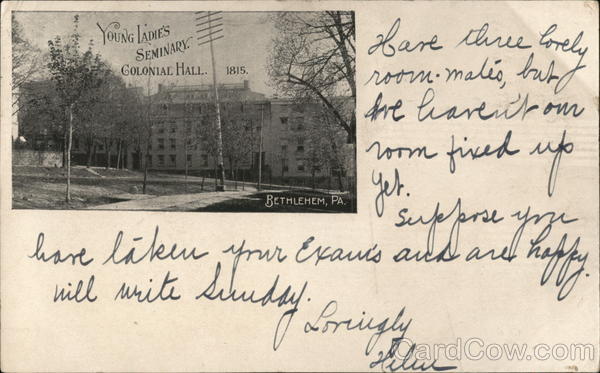 Young Ladies
Seminary.
Colonial Hall. 1815.
Bethlehem, Pa.
Have three lovely
room-mates, but
we haven't our
room fixed up
yet.
Suppose you
have taken your Exams and are happy.
will write Sunday.
Lovingly
Helen
CardCow.com